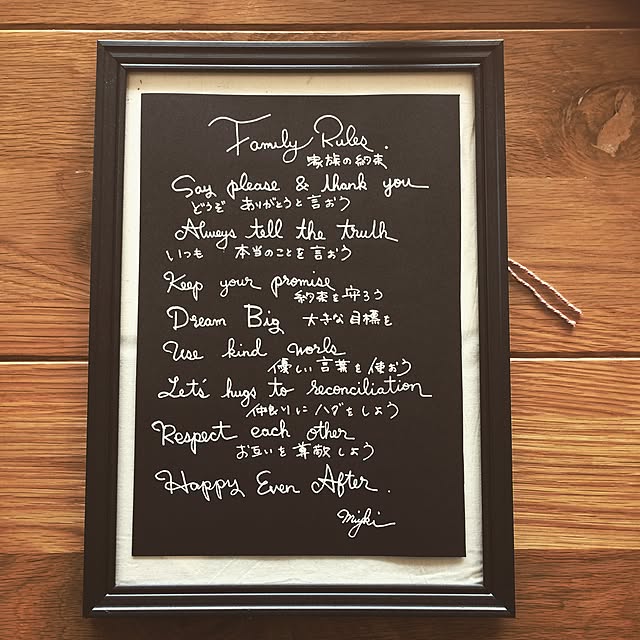 Family Rules.
家族の約束
Say please & thank you
どうぞ ありがとうと言おう
Always tell the truth
いつも 本当のことを言おう
Keep your promise
約束を守ろう
Dream Big 大きな目標を
Use kind worls
優しい言葉を使おう
Let's hugs to reconciliation
仲良りにハグをしよう
Respect each other
お互いを尊敬しよう
Happy Even After.
Miyuki